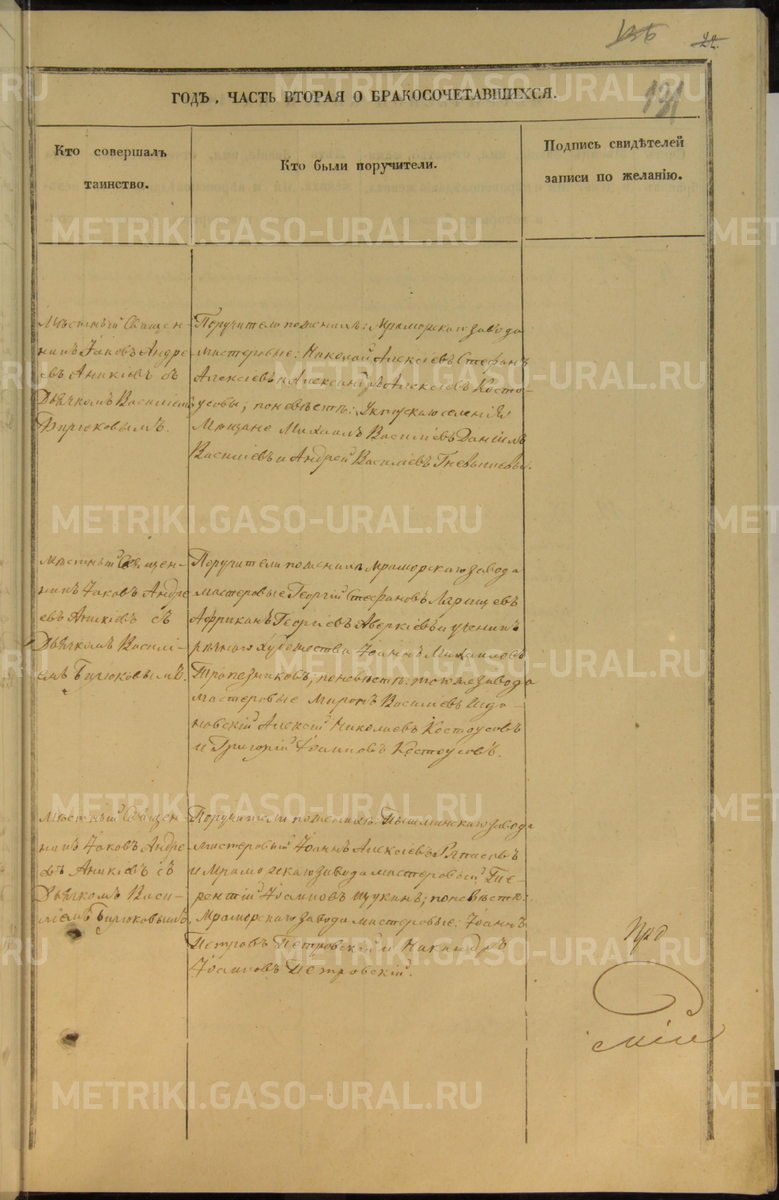 22.
131
ГОДЪ, ЧАСТЬ ВТОРАЯ О БРАКОСОЧЕТАВШИХСЯ.
Кто совершалъ
таинство.
Кто были поручители.
Подпись свидѣтелей
записи по желанію.
Мѣстный Священ-
никъ Іаковъ Андре
евъ Аникіевъ съ
Дьячкомъ Василіемъ
Бирюковымъ.
Поручители по женихѣ: Мраморскаго завода
мастеровые: Николай Алексѣевъ Стефанъ
Алексѣевъ и Александръ Алексѣевъ Косто-
усовы; по невѣстѣ: Уктусскаго селенія
Мѣщане Михаилъ Василіевъ Даніилъ
Василіевъ и Андрей Василіевъ
Мѣстный Священ-
никъ Іаковъ Андре
евъ Аникіевъ съ
Дьячкомъ Василі-
емъ Бирюковымъ.
Поручители по женихѣ Мраморскаго завода
мастеровые Георгій Стефановъ
Африканъ Георгіевъ Аверкіевъ и ученикъ
художества Іоаннъ Михаиловъ
Трапезниковъ; по невѣстѣ: того же завода
мастеровые Миронъ Василіевъ
новскій Алексій Николаевъ Костоусовъ
и Григорій Іоанновъ Костоусовъ.
Мѣстный Священ-
никъ Іаковъ Андре
евъ Аникіевъ съ
Дьячкомъ Васи-
ліемъ Бирюковымъ.
Поручители по женихѣ: Пышминскаго завода
мастеровый Іоаннъ Алексѣевъ
и Мраморскаго завода мастеровый Те-
рентій Іоанновъ Щукинъ; по невѣстѣ:
Мраморскаго завода мастеровые: Іоаннъ
Петровъ Петровскій и Никандръ
Іоанновъ Петровскій.
METRIKI.GASO-URAL.RU